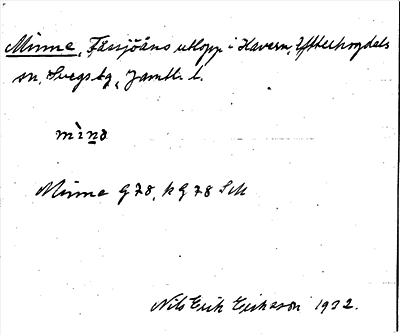 Minne, Fässjöåns utlopp i Havern, Ytterhogdals
sn, Svegs tg, Jämtl. l.
mìnə
Minne G 78, k G 78 SM
Nils Erik Erikson 1932.